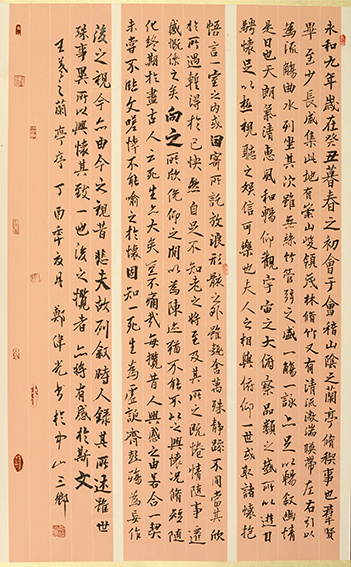 永和九年歲在癸丑暮春之初會于會稽山陰之蘭亭脩稧事也群賢
畢至少長咸集此地有崇山峻領茂林脩竹又有清流激湍暎帶左右引以
為流觴曲水列坐其次雖無絲竹管弦之盛一觴一詠亦足以暢敘幽情
是日也天朗氣清惠風和暢仰觀宇宙之大俯察品類之盛所以遊目
騁懷足以極視聽之娛信可樂也夫人之相與俯仰一世或取諸懷抱
悟言一室之內或因寄所託放浪形骸之外雖趣舍萬殊靜躁不同當其欣
於所遇蹔得於己快然自足不知老之將至及其所之既惓情隨事遷
感慨係之矣向之所欣俛仰之間以為陳迹猶不能不以之興懷況脩短隨
化終期於盡古人云死生亦大矣豈不痛哉每攬昔人興感之由若合一契
未嘗不臨文嗟悼不能喻之於懷固知一死生為虛誕齊彭殤為妄作
後之視今亦由今之視昔悲夫故列敘時人錄其所述雖世
殊事異所以興懷其致一也後之攬者亦將有感於斯文
王羲之蘭亭序 丁酉年夏月 鄭偉光書於中山三鄉